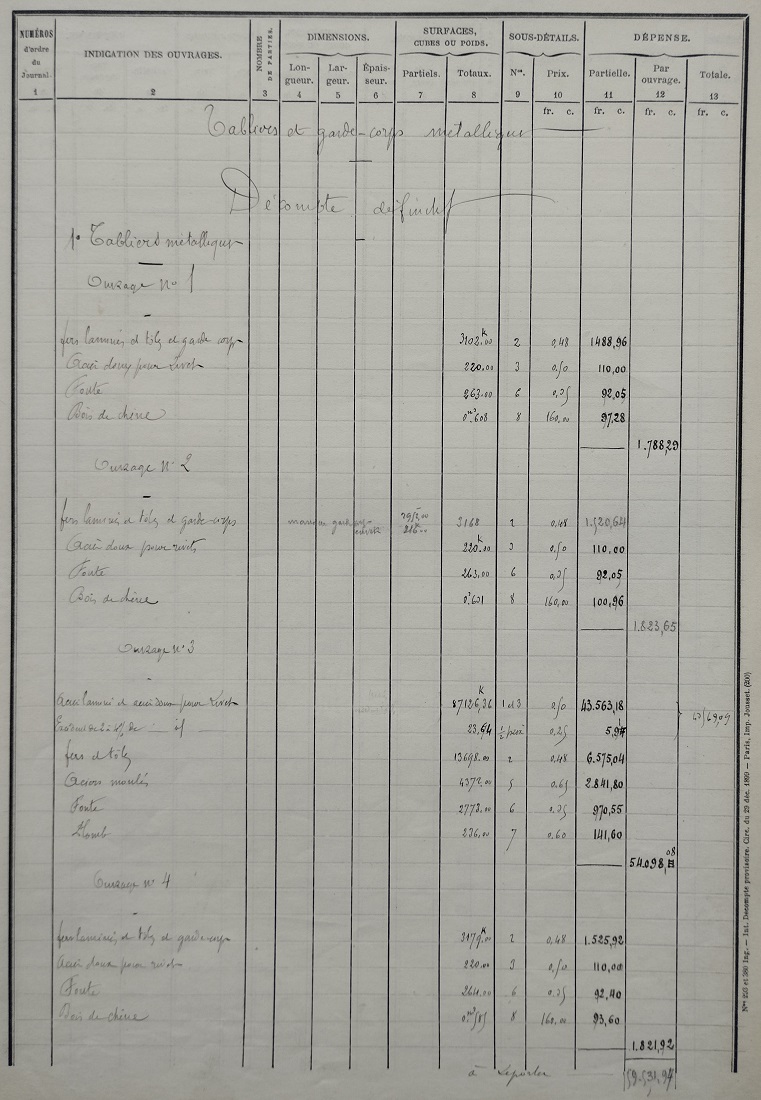 NUMÉROS d'ordre du Journal. INDICATION DES OUVRAGES. NOMBRE DE PARTIES. DIMENSIONS. SURFACES, CUBES OU POIDS. SOUS-DÉTAILS. DÉPENSE.
Longueur. Largeur. Épaisseur. Partiels. Totaux. Nos. Prix. Partielle. Par ouvrage. Totale.
1 2 3 4 5 6 7 8 9 10 11 12 13
fr. c. fr. c. fr. c. fr. c.
Tabliers et garde-corps métalliques
Décompte définitif
1° Tabliers métalliques
Ouvrage N° 1
fers laminés et tôles et garde corps 3102k.00 2 0,48 1488,96
Acier doux pour rivets 220.00 3 0,50 110,00
Fonte 263.00 6 0,35 92,05
Bois de chêne 0m3.608 8 160,00 97,28
1.788,29
Ouvrage N° 2
fers laminés et tôles et garde-corps 2952,00 216k.00 3168 2 0,48 1.520,64
Acier doux pour rivets 220k.00 3 0,50 110,00
Fonte 263,00 6 0,35 92,05
Bois de chêne 0,631 8 160,00 100,96
1.823,65
Ouvrage N° 3
Acier laminé et acier doux pour rivets 87126k,36 1 et 3 0,50 43.563,18
23,64 0,25
fers et tôles 13698.00 2 0,48 6.575,04
Aciers moulés 4372.00 5 0,65 2.841,80
Fonte 2773.00 6 0,35 970,55
Plomb 236.00 7 0.60 141,60
54.098,08
Ouvrage N° 4
fers laminés et tôles et garde-corps 3179k.00 2 0,48 1.525,92
Acier doux pour rivets 220.00 3 0,50 110,00
Fonte 264.00 6 0,35 92,40
Bois de chêne 0m3,585 8 160,00 93,60
1.821,92
à reporter 59.531,94
Nos 293 et 380 Ing. — Int. Décompte provisoire. Circ. du 29 déc. 1899 — Paris, Imp. Jousset. (200)